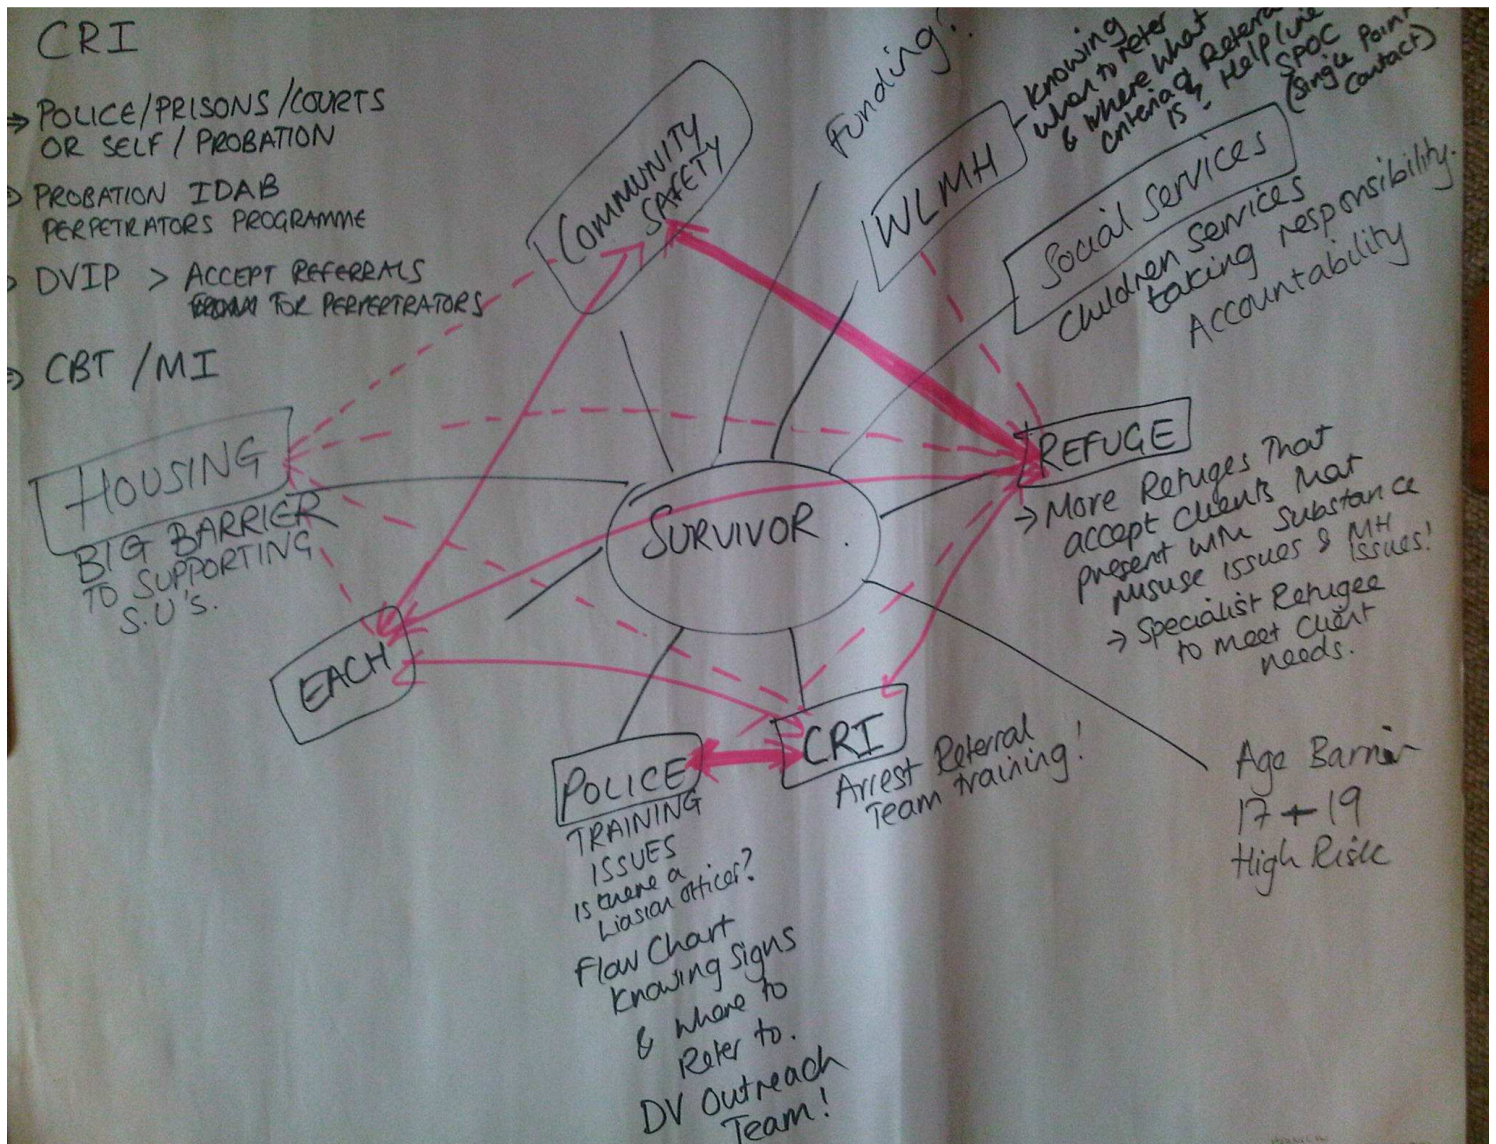 CRI
→ POLICE/PRISONS/COURTS
OR SELF/PROBATION
→ PROBATION IDAB
PERPETRATORS PROGRAMME
→ DVIP > ACCEPT REFERRALS
FOR PERPERTRATORS
→ CBT/MI
COMMUNITY
SAFETY
Funding?
WLMH
Knowing
when to refer
& where what
criteria of Referral
is? Helpline
SPOC
(Single Point
Contact)
Social Services
Children Services
taking responsibility.
Accountability
HOUSING
BIG BARRIER
TO SUPPORTING
S.U's.
SURVIVOR.
REFUGE
→ More Refuges That
accept clients that
present with substance
misuse issues & MH
issues!
→ Specialist Refugee
to meet client
needs.
EACH
POLICE
TRAINING
ISSUES
is there a
Liasian officer?
Flow Chart
Knowing Signs
& where to
Refer to.
DV Outreach
Team!
CRI
Arrest Referral
Team training!
Age Barrier
17 + 19
High Risk